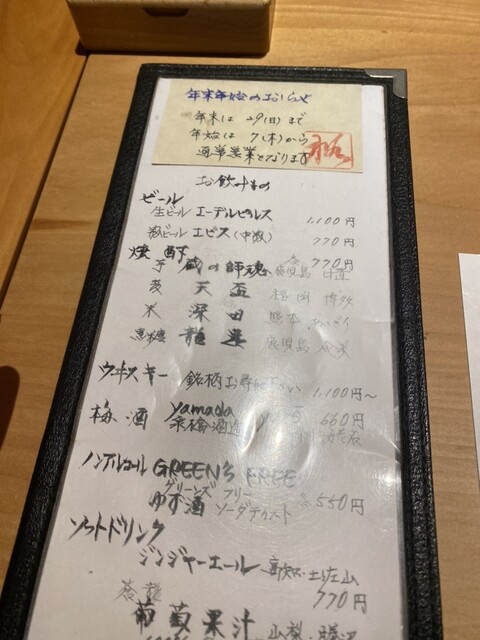 年末年始のおしらせ
年末は 29(日)まで
年始は 7(木)から
通常営業となります
お飲みもの
ビール
生ビール エーデルピルス 1,100円
瓶ビール エビス(中瓶) 770円
焼酎 各770円
芋 蔵の師魂 鹿児島 日置
麦 天盃 福岡
米 深田 熊本
黒糖 龍宮 鹿児島 奄美
ウヰスキー 銘柄お尋ね下さい 1,100円~
梅酒 yamada 660円
ノンアルコール GREEN'S FREE
グリーンズ フリー
ゆず酒 ソーダテイスト 各550円
ソフトドリンク
ジンジャーエール 高知・土佐山
770円
葡萄果汁 山梨・勝沼